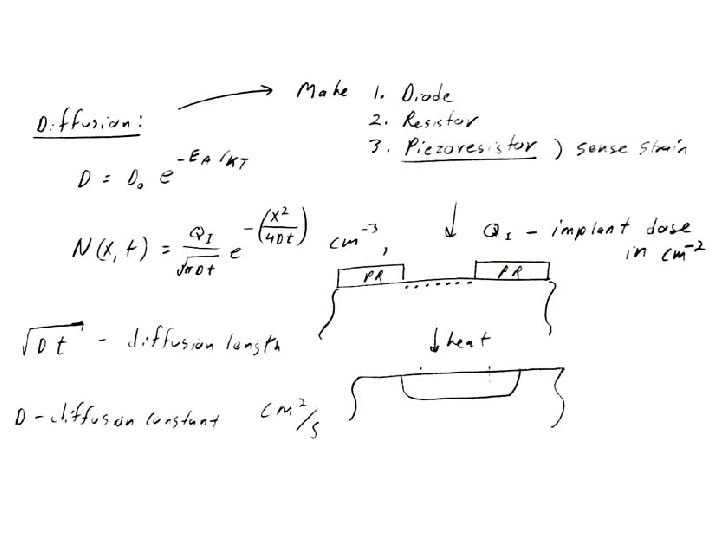 Diffusion: → Make 1. Diode
2. Resistor
3. Piezoresistor ) sense strain
D = D₀ e^(-E_A/KT)
N(x, t) = Q_I/√(πDt) e^(-(x²/4Dt)) cm⁻³,
↓ Q_I - implant dose
in cm⁻²
PR PR
√Dt - diffusion length
↓ heat
D - diffusion constant cm²/s